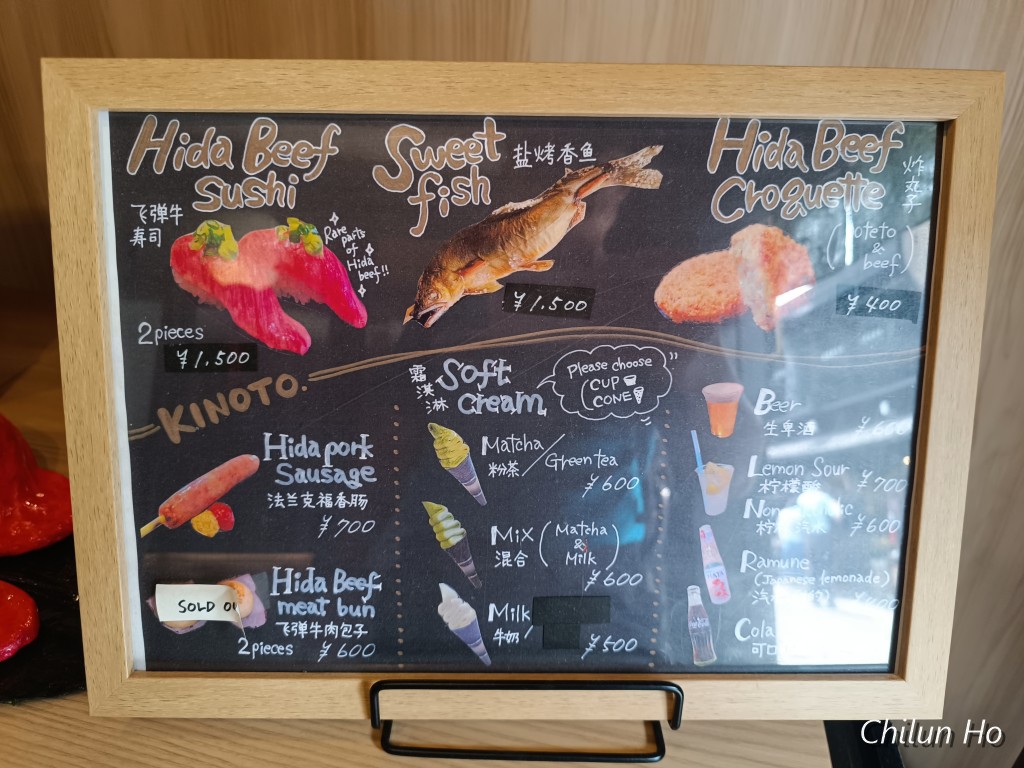 Hida Beef
Sushi
飞弹牛
寿司
Rare
parts
of
Hida
beef!!
2pieces
¥1,500
Sweet
fish
盐烤香鱼
¥1,500
Hida Beef
Croquette
炸
丸
子
(Poteto
&
beef)
¥400
KINOTO.
Hida pork
Sausage
法兰克福香肠
¥700
SOLD
Hida Beef
meat bun
飞弹牛肉包子
2pieces ¥600
霜
淇
淋
Soft
cream
Please choose
CUP
CONE
Matcha/
粉茶 Green tea
¥600
MiX (Matcha
混合 &
Milk)
¥600
Milk
牛奶 ¥500
Beer
生卑酒 ¥600
Lemon Sour
柠檬酸 ¥700
¥600
Ramune
(Japanese lemonade)
Cola
Chilun Ho